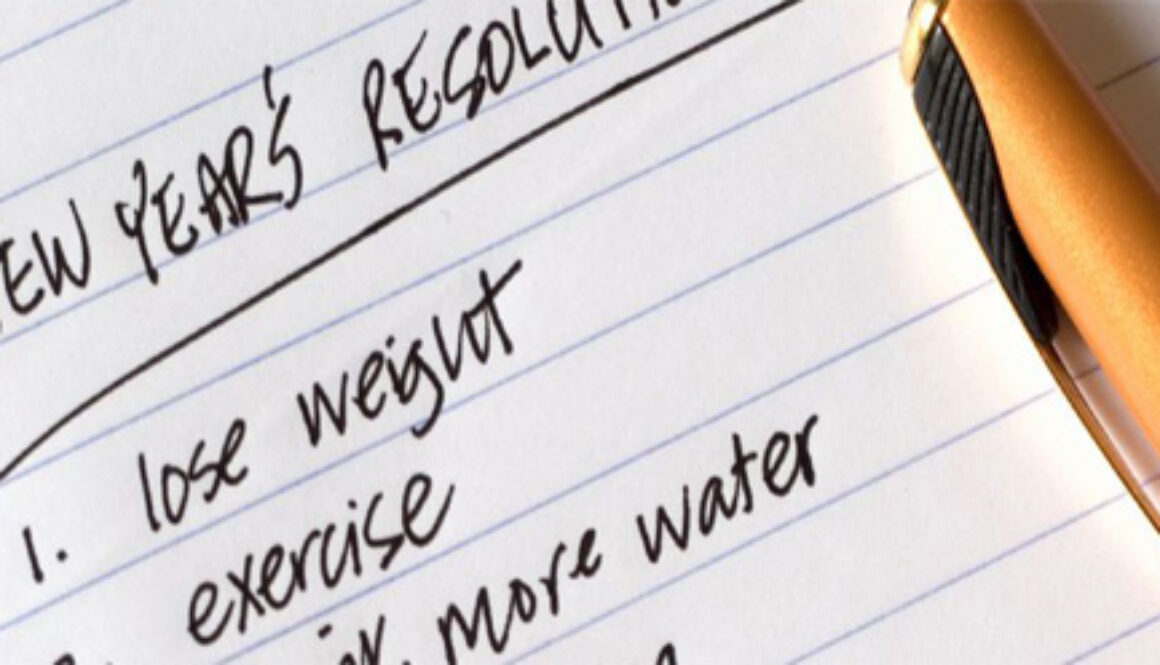 EW YEAR'S RESOLUTI
1. lose weight
exercise
more water